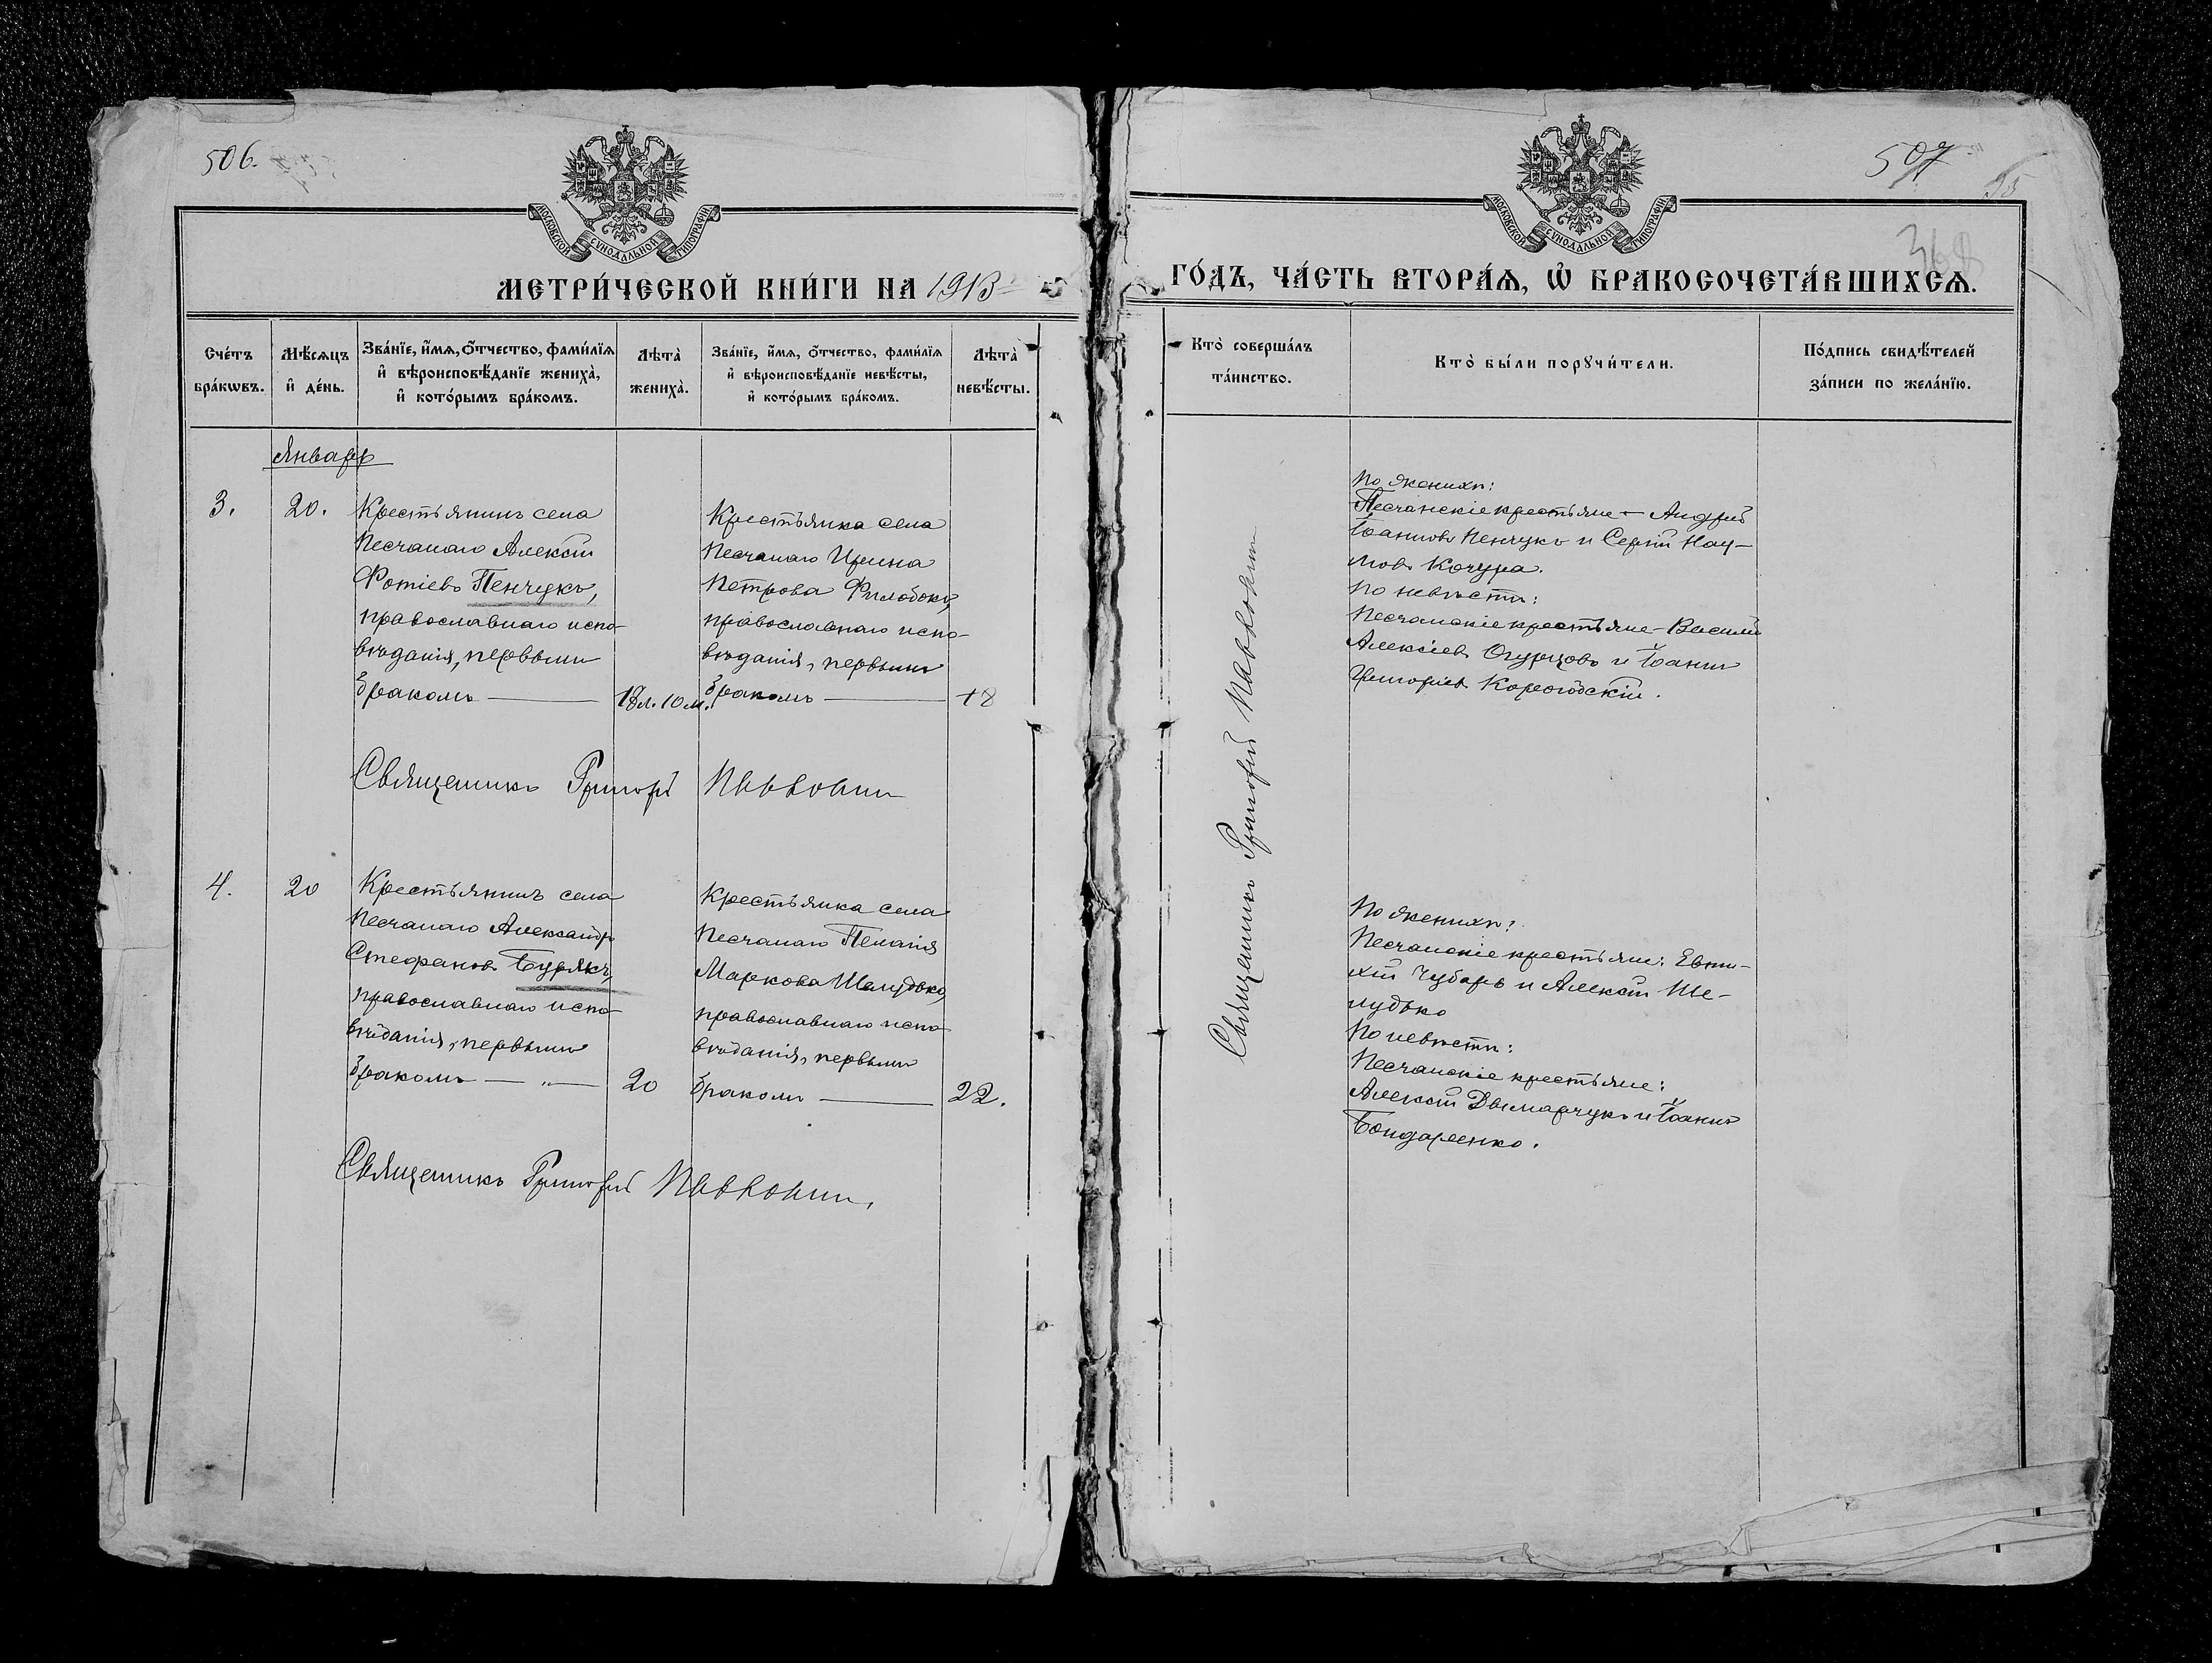 506.
МОСКОВСКОЙ СѴНОДАЛЬНОЙ ТИПОГРАФІИ
МЕТРИ́ЧЕСКОЙ КНИ́ГИ НА 1913
Сче́тъ бра́кѡвъ.
Мѣ́сяцъ и҆ де́нь.
Зва́нїе, и҆́мя, ѻ҆́тчество, фами́лїя
и҆ вѣроисповѣ́данїе жениха̀,
и҆ кото́рымъ бра́комъ.
Лѣта̀ жениха̀.
Зва́нїе, и҆́мя, ѻ҆́тчество, фами́лїя
и҆ вѣроисповѣ́данїе невѣ́сты,
и҆ кото́рымъ бра́комъ.
Лѣта̀ невѣ́сты.
Январь
3.
20.
Крестьянинъ села
Песчанаго Алексій
Фотіевъ Пенчукъ,
православнаго испо-
вѣданія, первымъ
бракомъ
18 л. 10 м.
Крестьянка села
Песчанаго Ирина
Петрова
православнаго испо-
вѣданія, первымъ
бракомъ
18
Священникъ Григорій
4.
20
Крестьянинъ села
Песчанаго Александръ
Стефановъ Бурякъ,
православнаго испо-
вѣданія, первымъ
бракомъ — „ —
20
Крестьянка села
Песчанаго Пелагія
Маркова Шелудько,
православнаго испо-
вѣданія, первымъ
бракомъ
22.
Священникъ Григорій
507
МОСКОВСКОЙ СѴНОДАЛЬНОЙ ТИПОГРАФІИ
ГО́ДЪ, ЧА́СТЬ ВТОРА́Я, Ѡ҆ БРАКОСОЧЕТА́ВШИХСЯ.
Кто̀ соверша́лъ
та́инство.
Кто̀ бы́ли порꙋчи́тели.
По́дпись свидѣ́телей
за́писи по жела́нїю.
Священникъ Григорій
По женихѣ:
Песчанскіе крестьяне — Андрей
Іоанновъ Пенчукъ и Сергій Нау-
мовъ Кочура.
По невѣстѣ:
Песчанскіе крестьяне — Василій
Алексіевъ Огурцовъ и Іоаннъ
Григоріевъ Корогодскій.
По женихѣ:
Песчанскіе крестьяне: Евти-
хій Чубарь и Алексій Ше-
лудько
По невѣстѣ:
Песчанскіе крестьяне:
Алексій Дымарчукъ и Іоаннъ
Бондаренко.